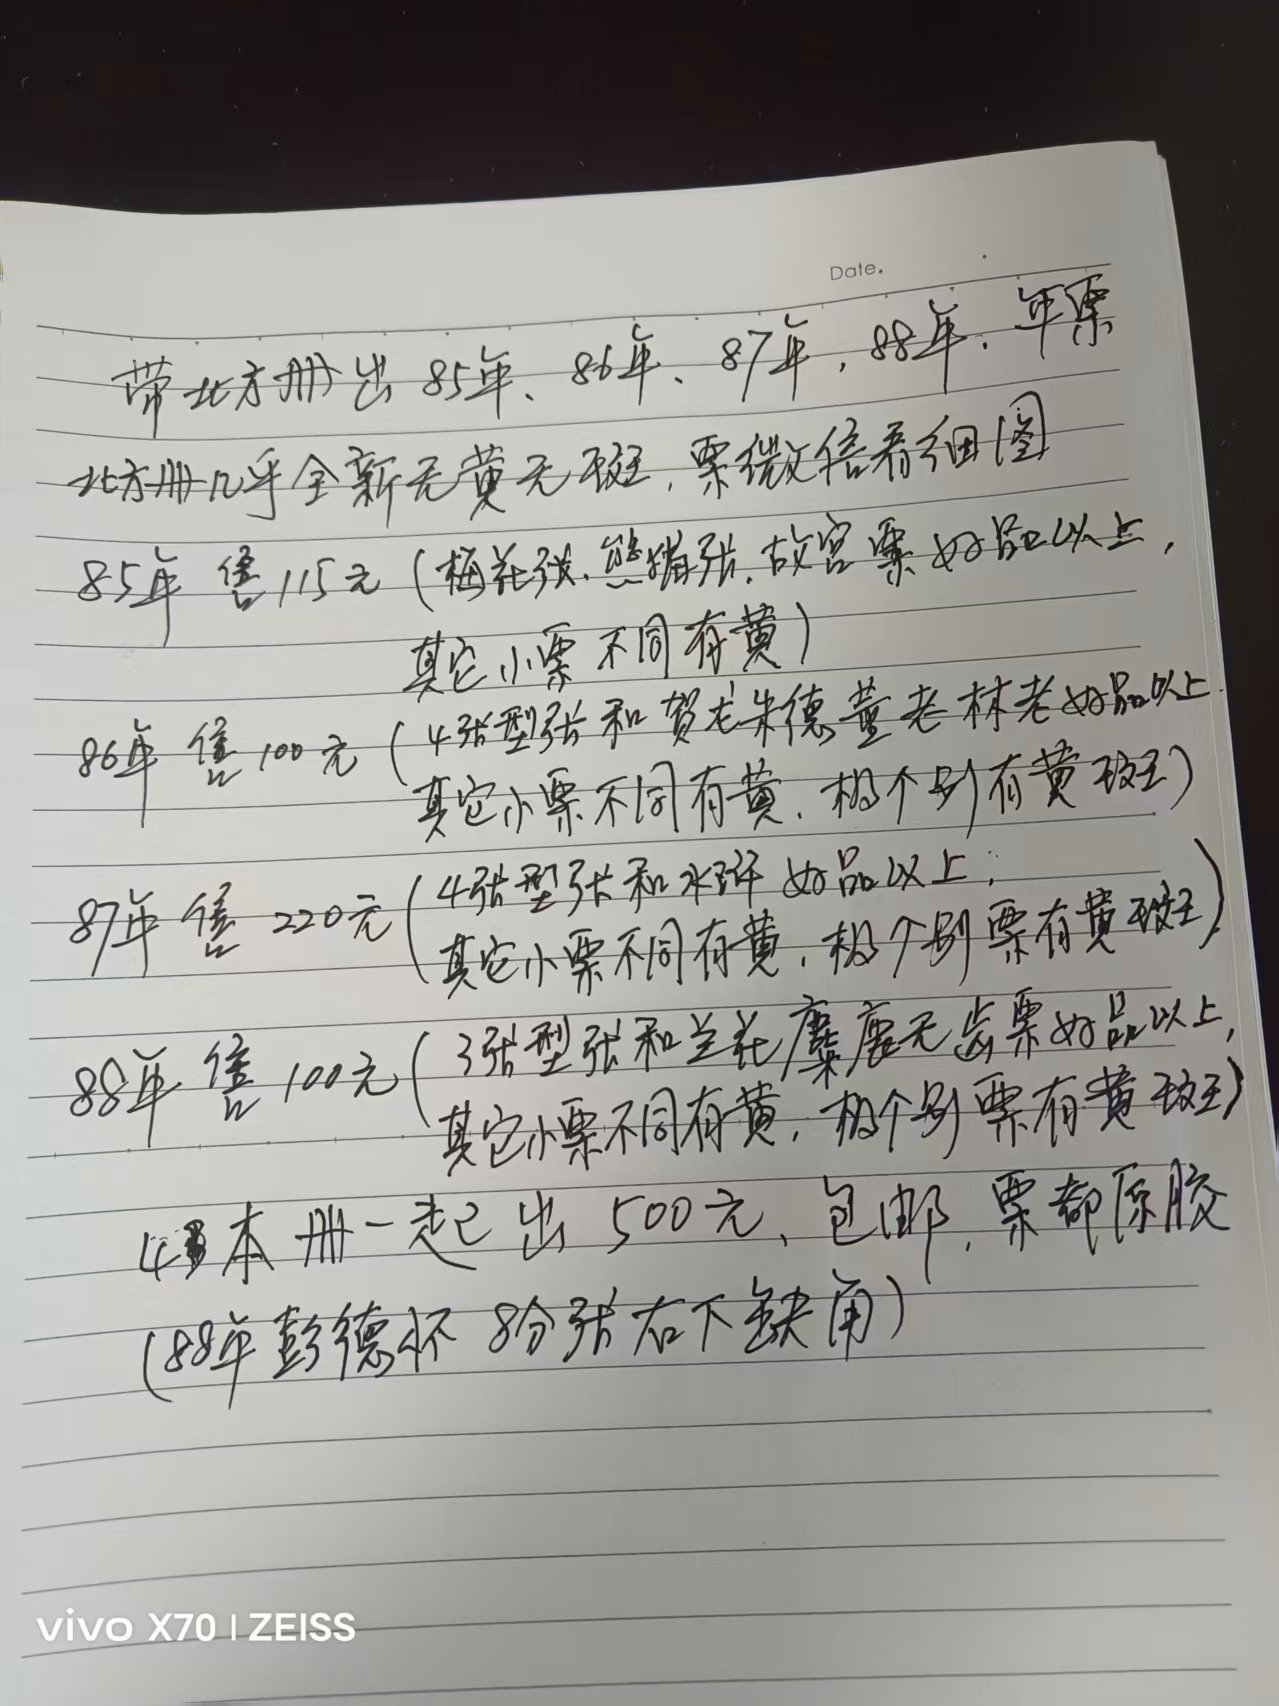 Date.
带北方册出85年、86年、87年，88年．年票
北方册几乎全新无黄无斑，票微信看细图
85年 售115元（梅花张.熊猫张.故宫票好品以上，
其它小票不同有黄）
86年 售100元（4张型张和贺龙朱德董老林老好品以上.
其它小票不同有黄．极个别有黄斑）
87年 售220元（4张型张和水浒好品以上；
其它小票不同有黄，极个别票有黄斑）
88年 售100元（3张型张和兰花麋鹿无齿票好品以上，
其它小票不同有黄，极个别票有黄斑）
4本册一起出500元、包邮，票都原胶
（88年彭德怀8分张右下缺角）
vivo X70 | ZEISS